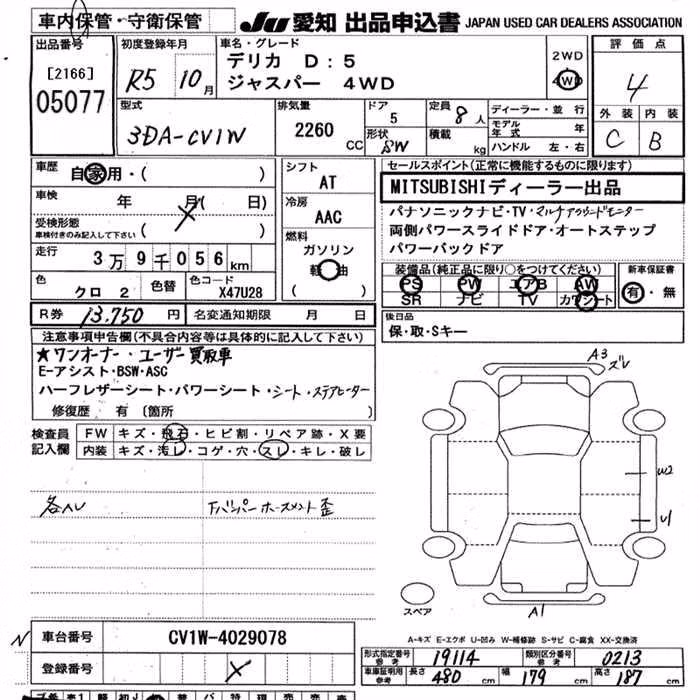 車内保管・守衛保管
JU 愛知 出品申込書 JAPAN USED CAR DEALERS ASSOCIATION
出品番号
[2166]
05077
初度登録年月
R5 10月
車名・グレード
デリカ D:5
ジャスパー 4WD
2WD
4WD
評価点
4
外装 内装
C B
型式
3DA-CV1W
排気量
2260 CC
ドア
5
形状
8W
定員 8 人
積載 kg
ディーラー・並行
モデル年式 年
ハンドル 左・右
車歴
自家用・( )
車検 年 月( 日)
受検形態
車検付きのみ記入して下さい ( )
走行 3万9千056km
色 クロ 2
色替
色コード X47U28
シフト
AT
冷房
AAC
燃料
ガソリン
軽油
( )
セールスポイント(正常に機能するものに限ります)
MITSUBISHIディーラー出品
パナソニックナビ・TV・マルチアラウンドモニター
両側パワースライドドア・オートステップ
パワーバックドア
装備品(純正品に限り○をつけてください)
PS PW エアB AW
SR ナビ TV カワシート
新車保証書
有・無
R券 13,750 円
名変通知期限 月 日
後日品
保・取・Sキー
注意事項申告欄(不具合内容等は具体的に記入して下さい)
★ワンオーナー・ユーザー買取車
E-アシスト・BSW・ASC
ハーフレザーシート・パワーシート・シート・ステアヒーター
修復歴 有(箇所 )
検査員記入欄
FW キズ・飛石・ヒビ割・リペア跡・X要
内装 キズ・汚レ・コゲ・穴・スレ・キレ・破レ
各ヘU
下バンパーホースメント歪
A3
ズレ
W2
U1
A1
スペア
A-キズ E-エクボ U-凹み W-補修跡 S-サビ C-腐食 XX-交換済
N
車台番号 CV1W-4029078
登録番号
形式指定番号 参考 19114
類別区分番号 参考 0213
車庫証明用 参考 長さ 480 cm 幅 179 cm 高さ 187 cm